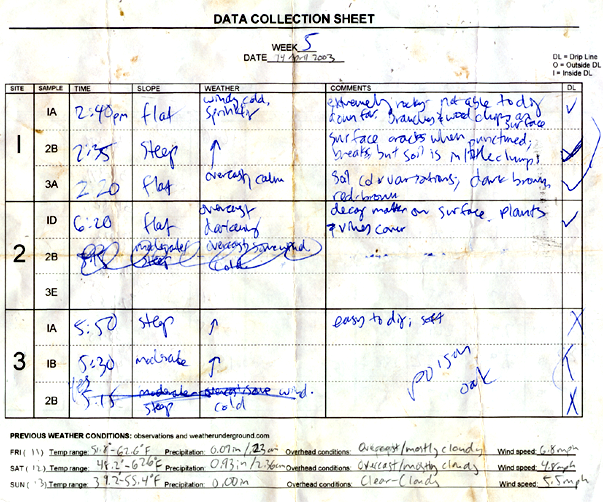 DATA COLLECTION SHEET
WEEK 5
DATE 14 April 2003
DL = Drip Line
O = Outside DL
I = Inside DL
SITE SAMPLE TIME SLOPE WEATHER COMMENTS DL
1
1A 2:40pm flat windy cold, sprinkly extremely rocky not able to dig down far. branches & wood chips on surface ✓
2B 2:35 steep ↑ surface cracks when punctured; breaks but soil is in little clumps ✓
3A 2:20 flat overcast, calm soil color variations; dark brown, red-brown ✓
2
1D 6:20 flat overcast darkening decay matter on surface. plants & vines cover ✓
2B moderate steep overcast, some wind. cold
3E
3
1A 5:50 steep ↑ easy to dig; soft X
1B 5:30 moderate ↑ poison oak
2B 5:15 moderate steep overcast/some wind. cold X
PREVIOUS WEATHER CONDITIONS: observations and weatherunderground.com
FRI (11) Temp range: 51.8°-62.6°F Precipitation: 0.09in/.23cm Overhead conditions: Overcast/mostly cloudy Wind speed: 6.8mph
SAT (12) Temp range: 48.2°-62.6°F Precipitation: 0.93in/2.36cm Overhead conditions: Overcast/mostly cloudy Wind speed: 4.8mph
SUN (13) Temp range: 39.2-55.4°F Precipitation: 0.00in Overhead conditions: Clear-Cloudy Wind speed: 5.5mph